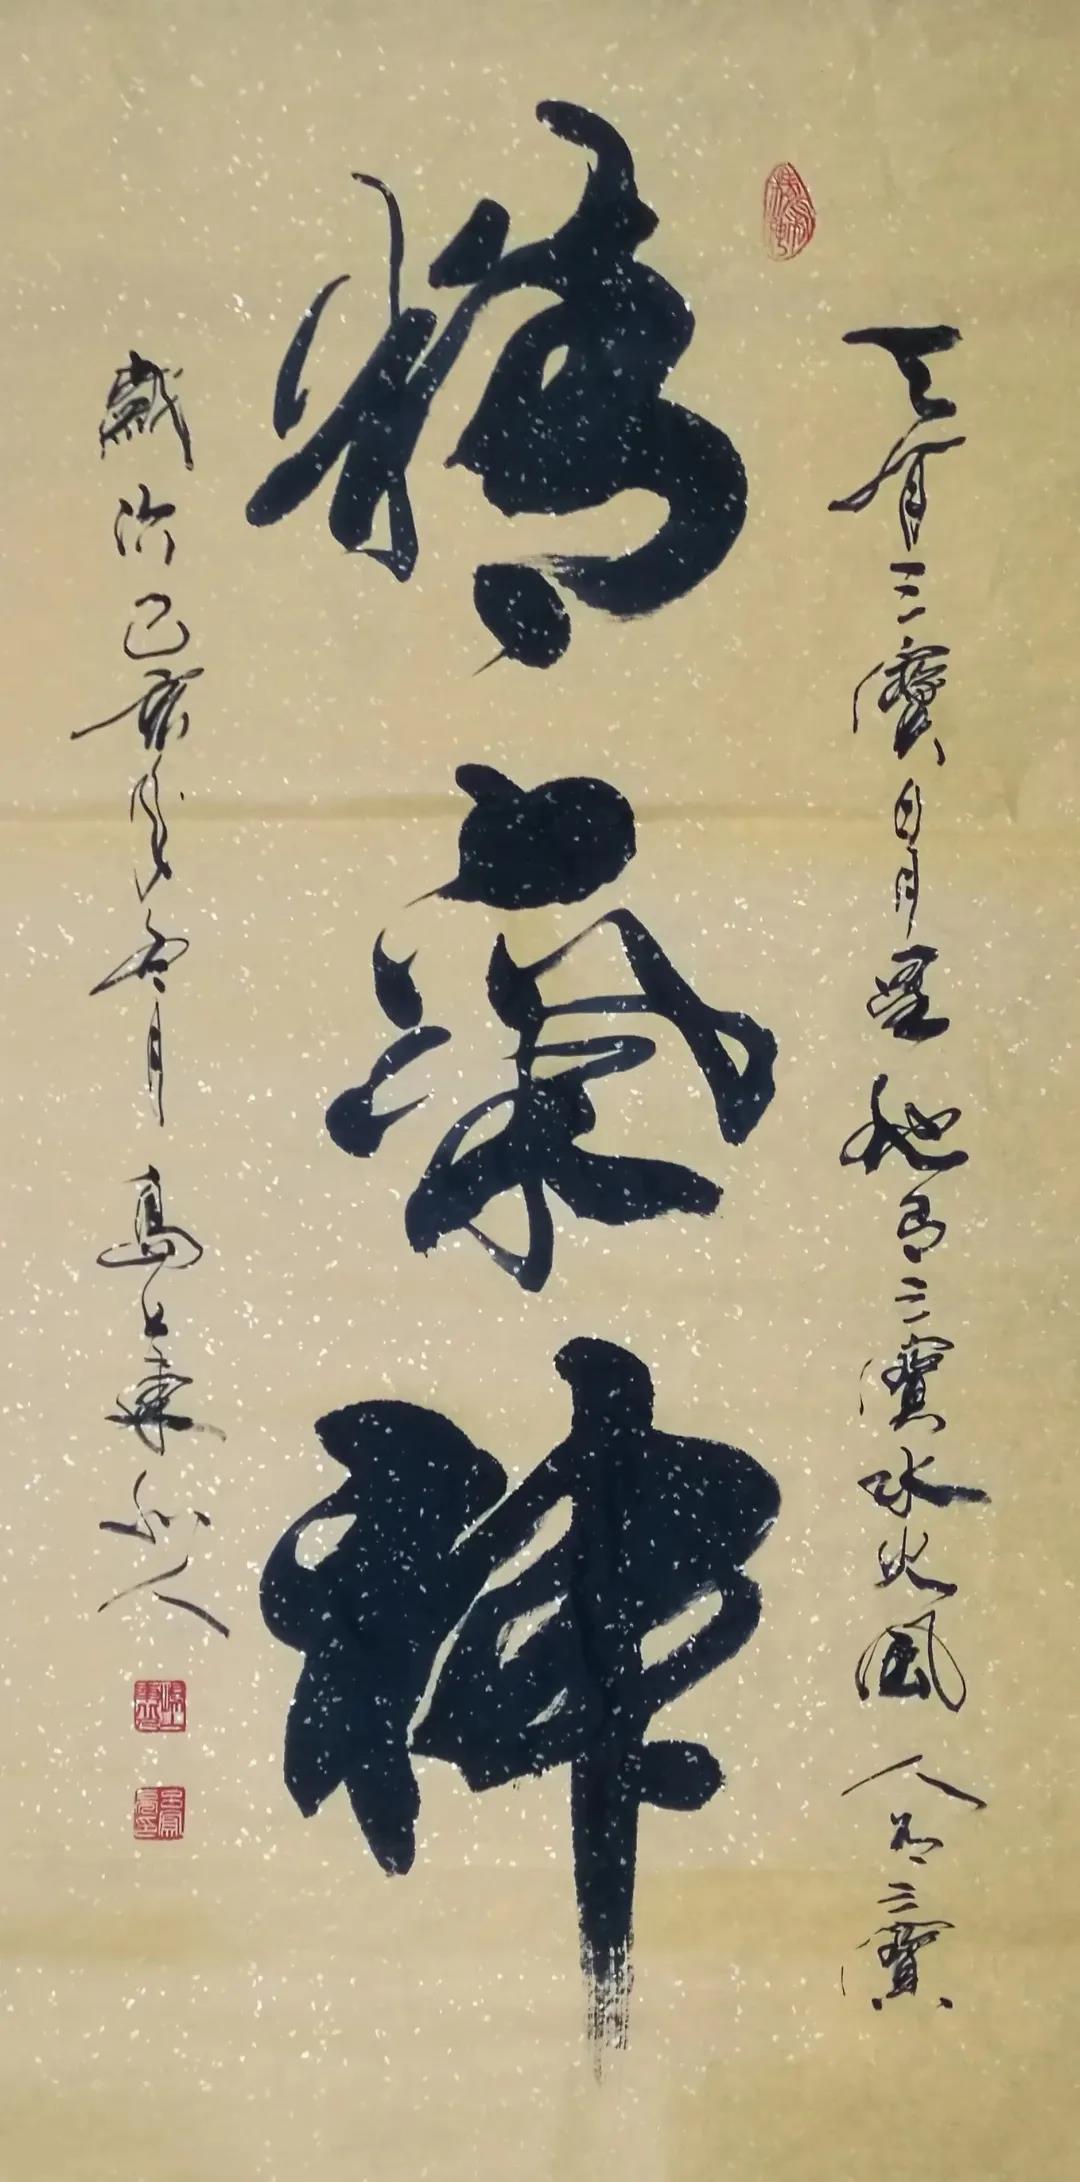 天有三寶日月星地有三寶水火風人有三寶
精氣神
歲次己亥年冬月